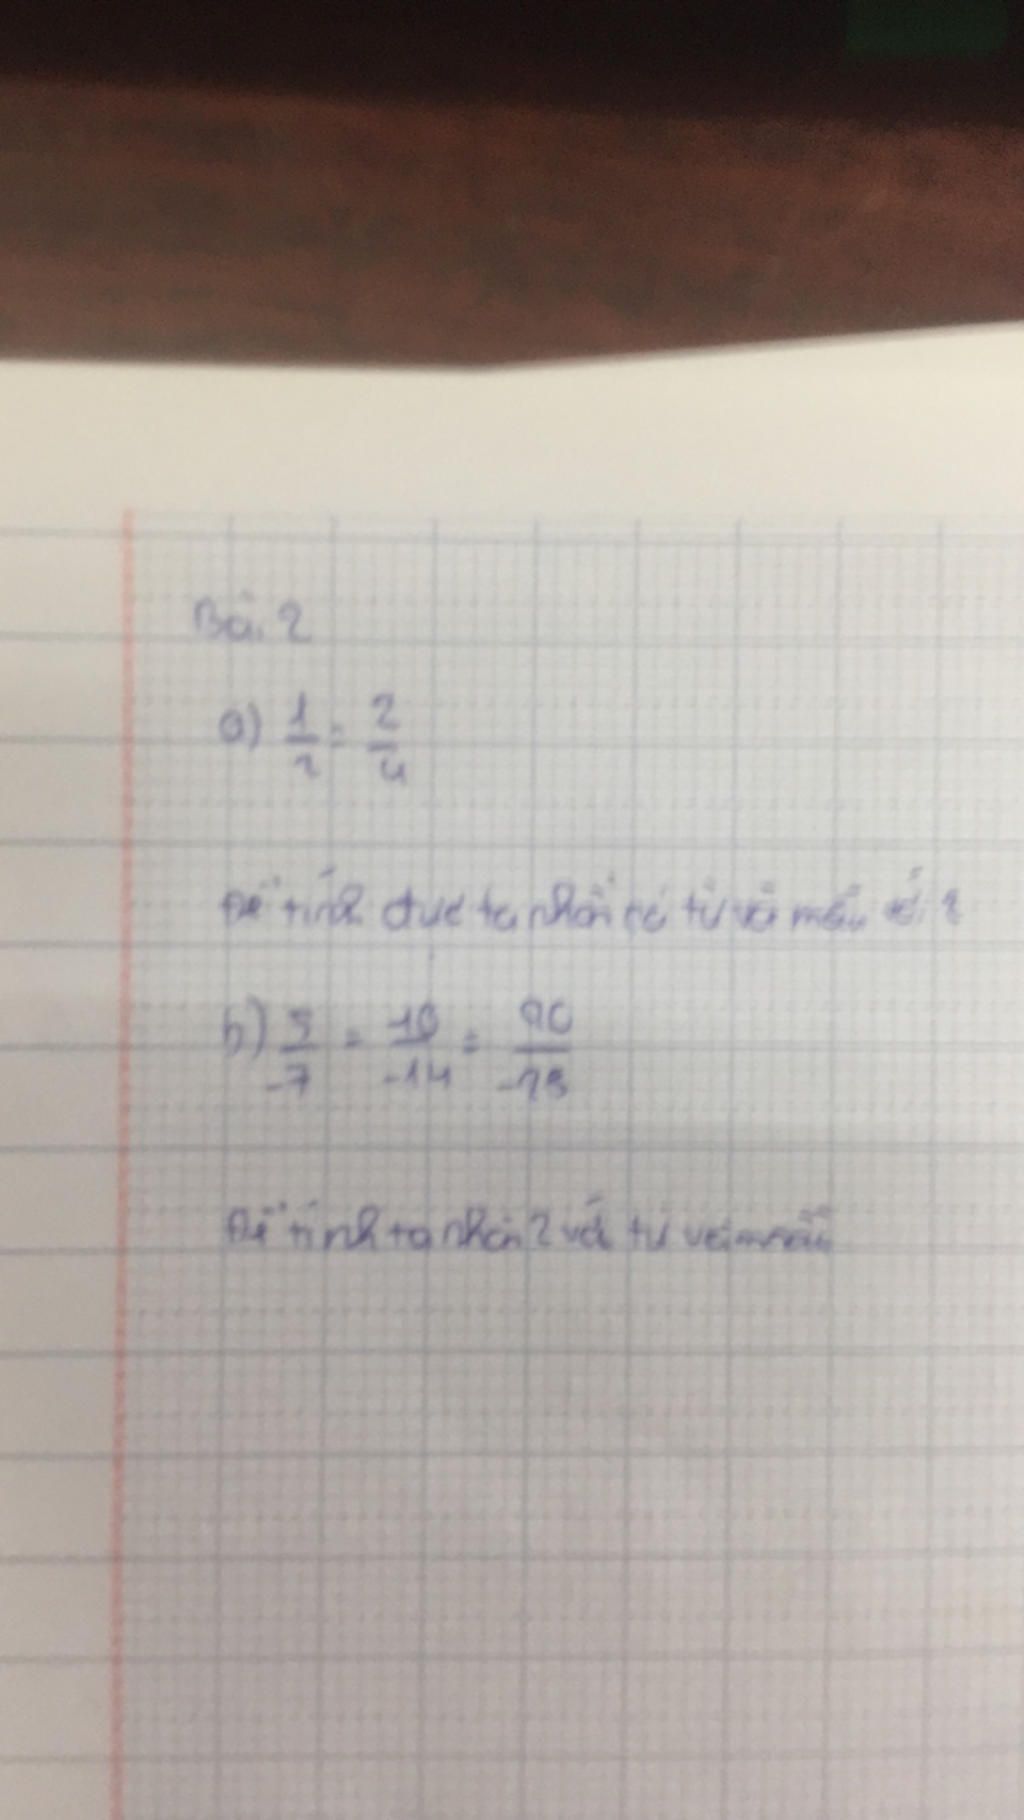 Bài 2
a) 1/2 = 2/4
Để tính được ta nhân cả tử và mẫu với 2
b) 5/-7 = 10/-14 = 20/-28
Để tính ta nhân 2 với tử với mẫu